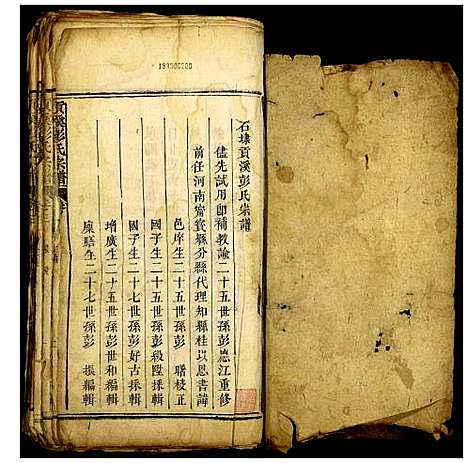 1930002800
石埭貢溪彭氏宗譜
儘先試用即補教諭二十五世孫彭德江重修
前任河南甯寳縣分縣代理知縣桂以恩書諱
邑庠生二十五世孫彭 曙校正
國子生二十五世孫彭毅陞採輯
國子生二十七世孫彭好古採輯
增廣生二十五世孫彭世和編輯
廩膳生二十七世孫彭 振編輯
貢溪彭氏宗譜